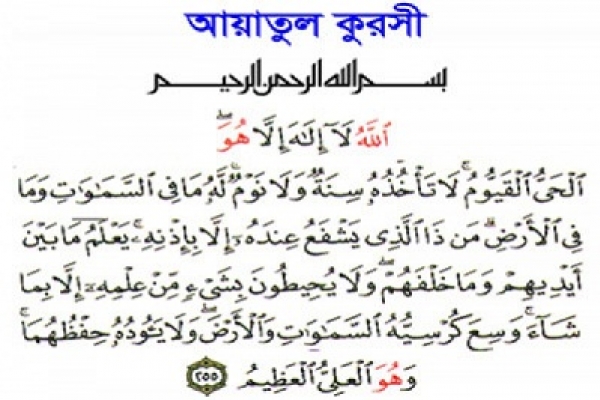 আয়াতুল কুরসী
بسم الله الرحمن الرحيم
ٱللَّهُ لَآ إِلَـٰهَ إِلَّا هُوَ ۖ
ٱلْحَىُّ ٱلْقَيُّومُ ۚ لَا تَأْخُذُهُۥ سِنَةٌ وَلَا نَوْمٌ ۚ لَّهُۥ مَا فِى ٱلسَّمَـٰوَٰتِ وَمَا
فِى ٱلْأَرْضِ ۗ مَن ذَا ٱلَّذِى يَشْفَعُ عِندَهُۥٓ إِلَّا بِإِذْنِهِۦ ۚ يَعْلَمُ مَا بَيْنَ
أَيْدِيهِمْ وَمَا خَلْفَهُمْ ۖ وَلَا يُحِيطُونَ بِشَىْءٍ مِّنْ عِلْمِهِۦٓ إِلَّا بِمَا
شَآءَ ۚ وَسِعَ كُرْسِيُّهُ ٱلسَّمَـٰوَٰتِ وَٱلْأَرْضَ ۖ وَلَا يَـُٔودُهُۥ حِفْظُهُمَا ۚ
وَهُوَ ٱلْعَلِىُّ ٱلْعَظِيمُ ٢٥٥